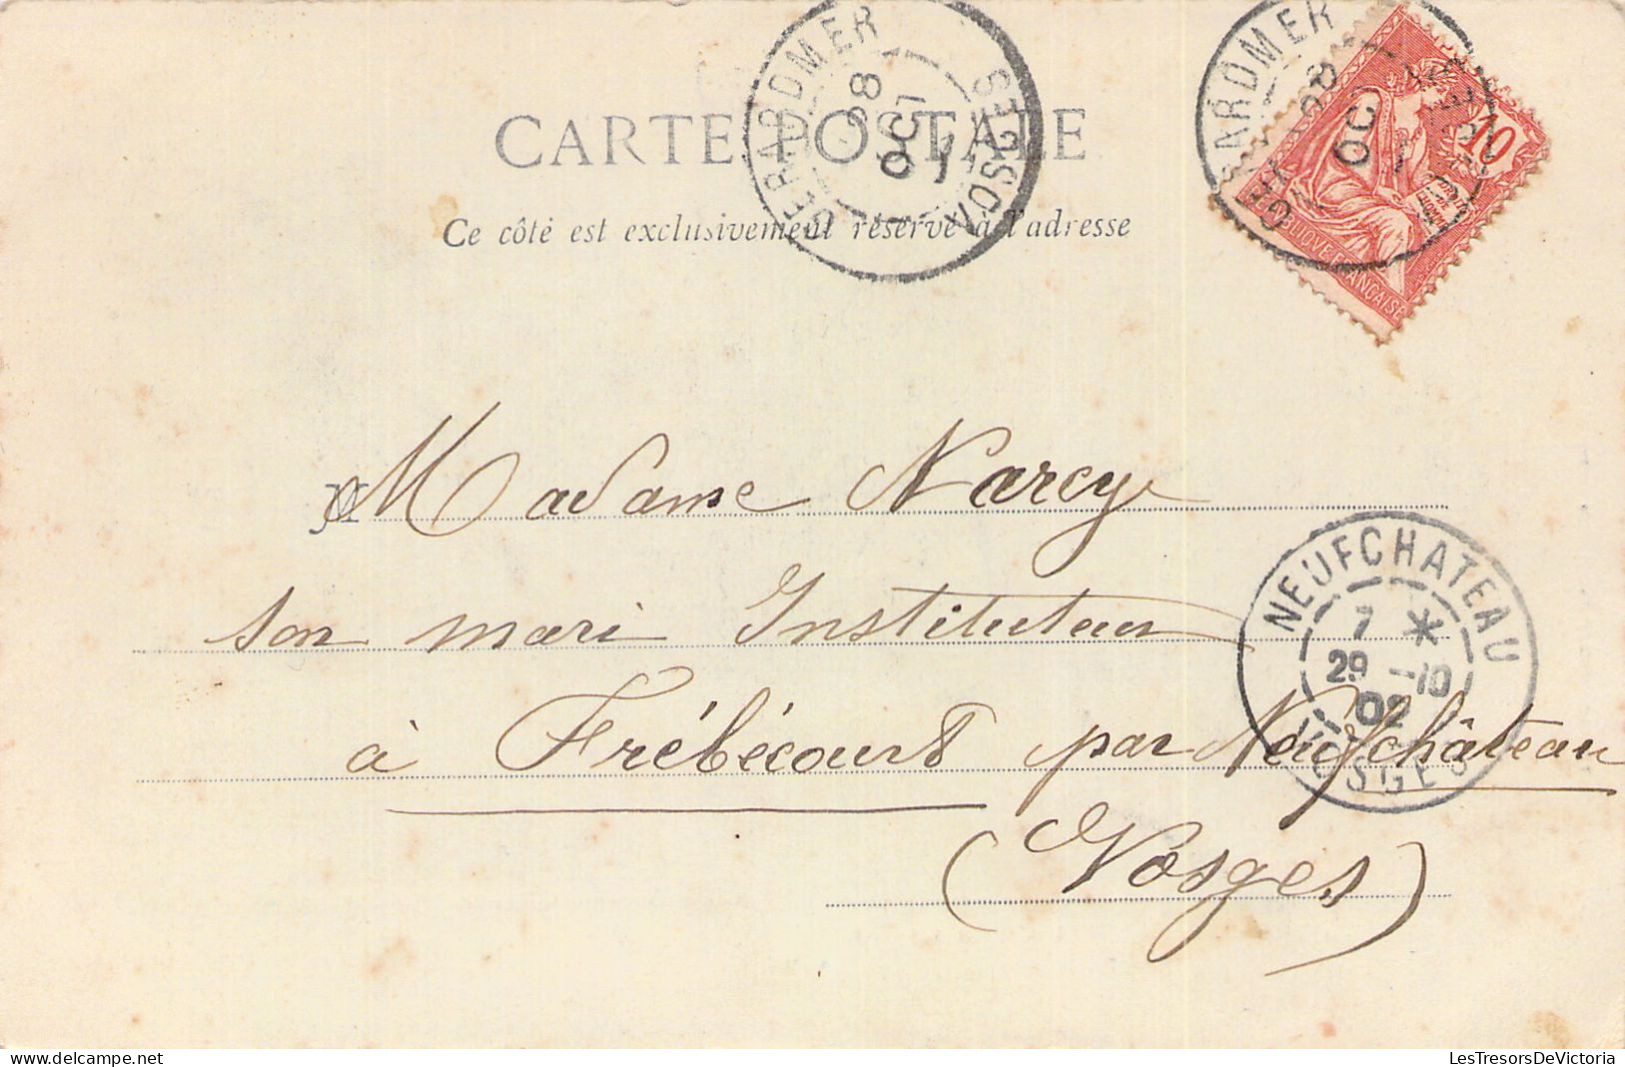 CARTE POSTALE
Ce côté est exclusivement réservé à l'adresse
GERARDMER
28
OCT
VOSGES
GERARDMER
28
OCT
10
REPUBLIQUE FRANÇAISE
M
Madame Narcy
son mari Instituteur
à Frébécourt par Neufchâteau
(Vosges)
NEUFCHATEAU
7 *
29 -10
02
VOSGES
LesTresorsDeVictoria